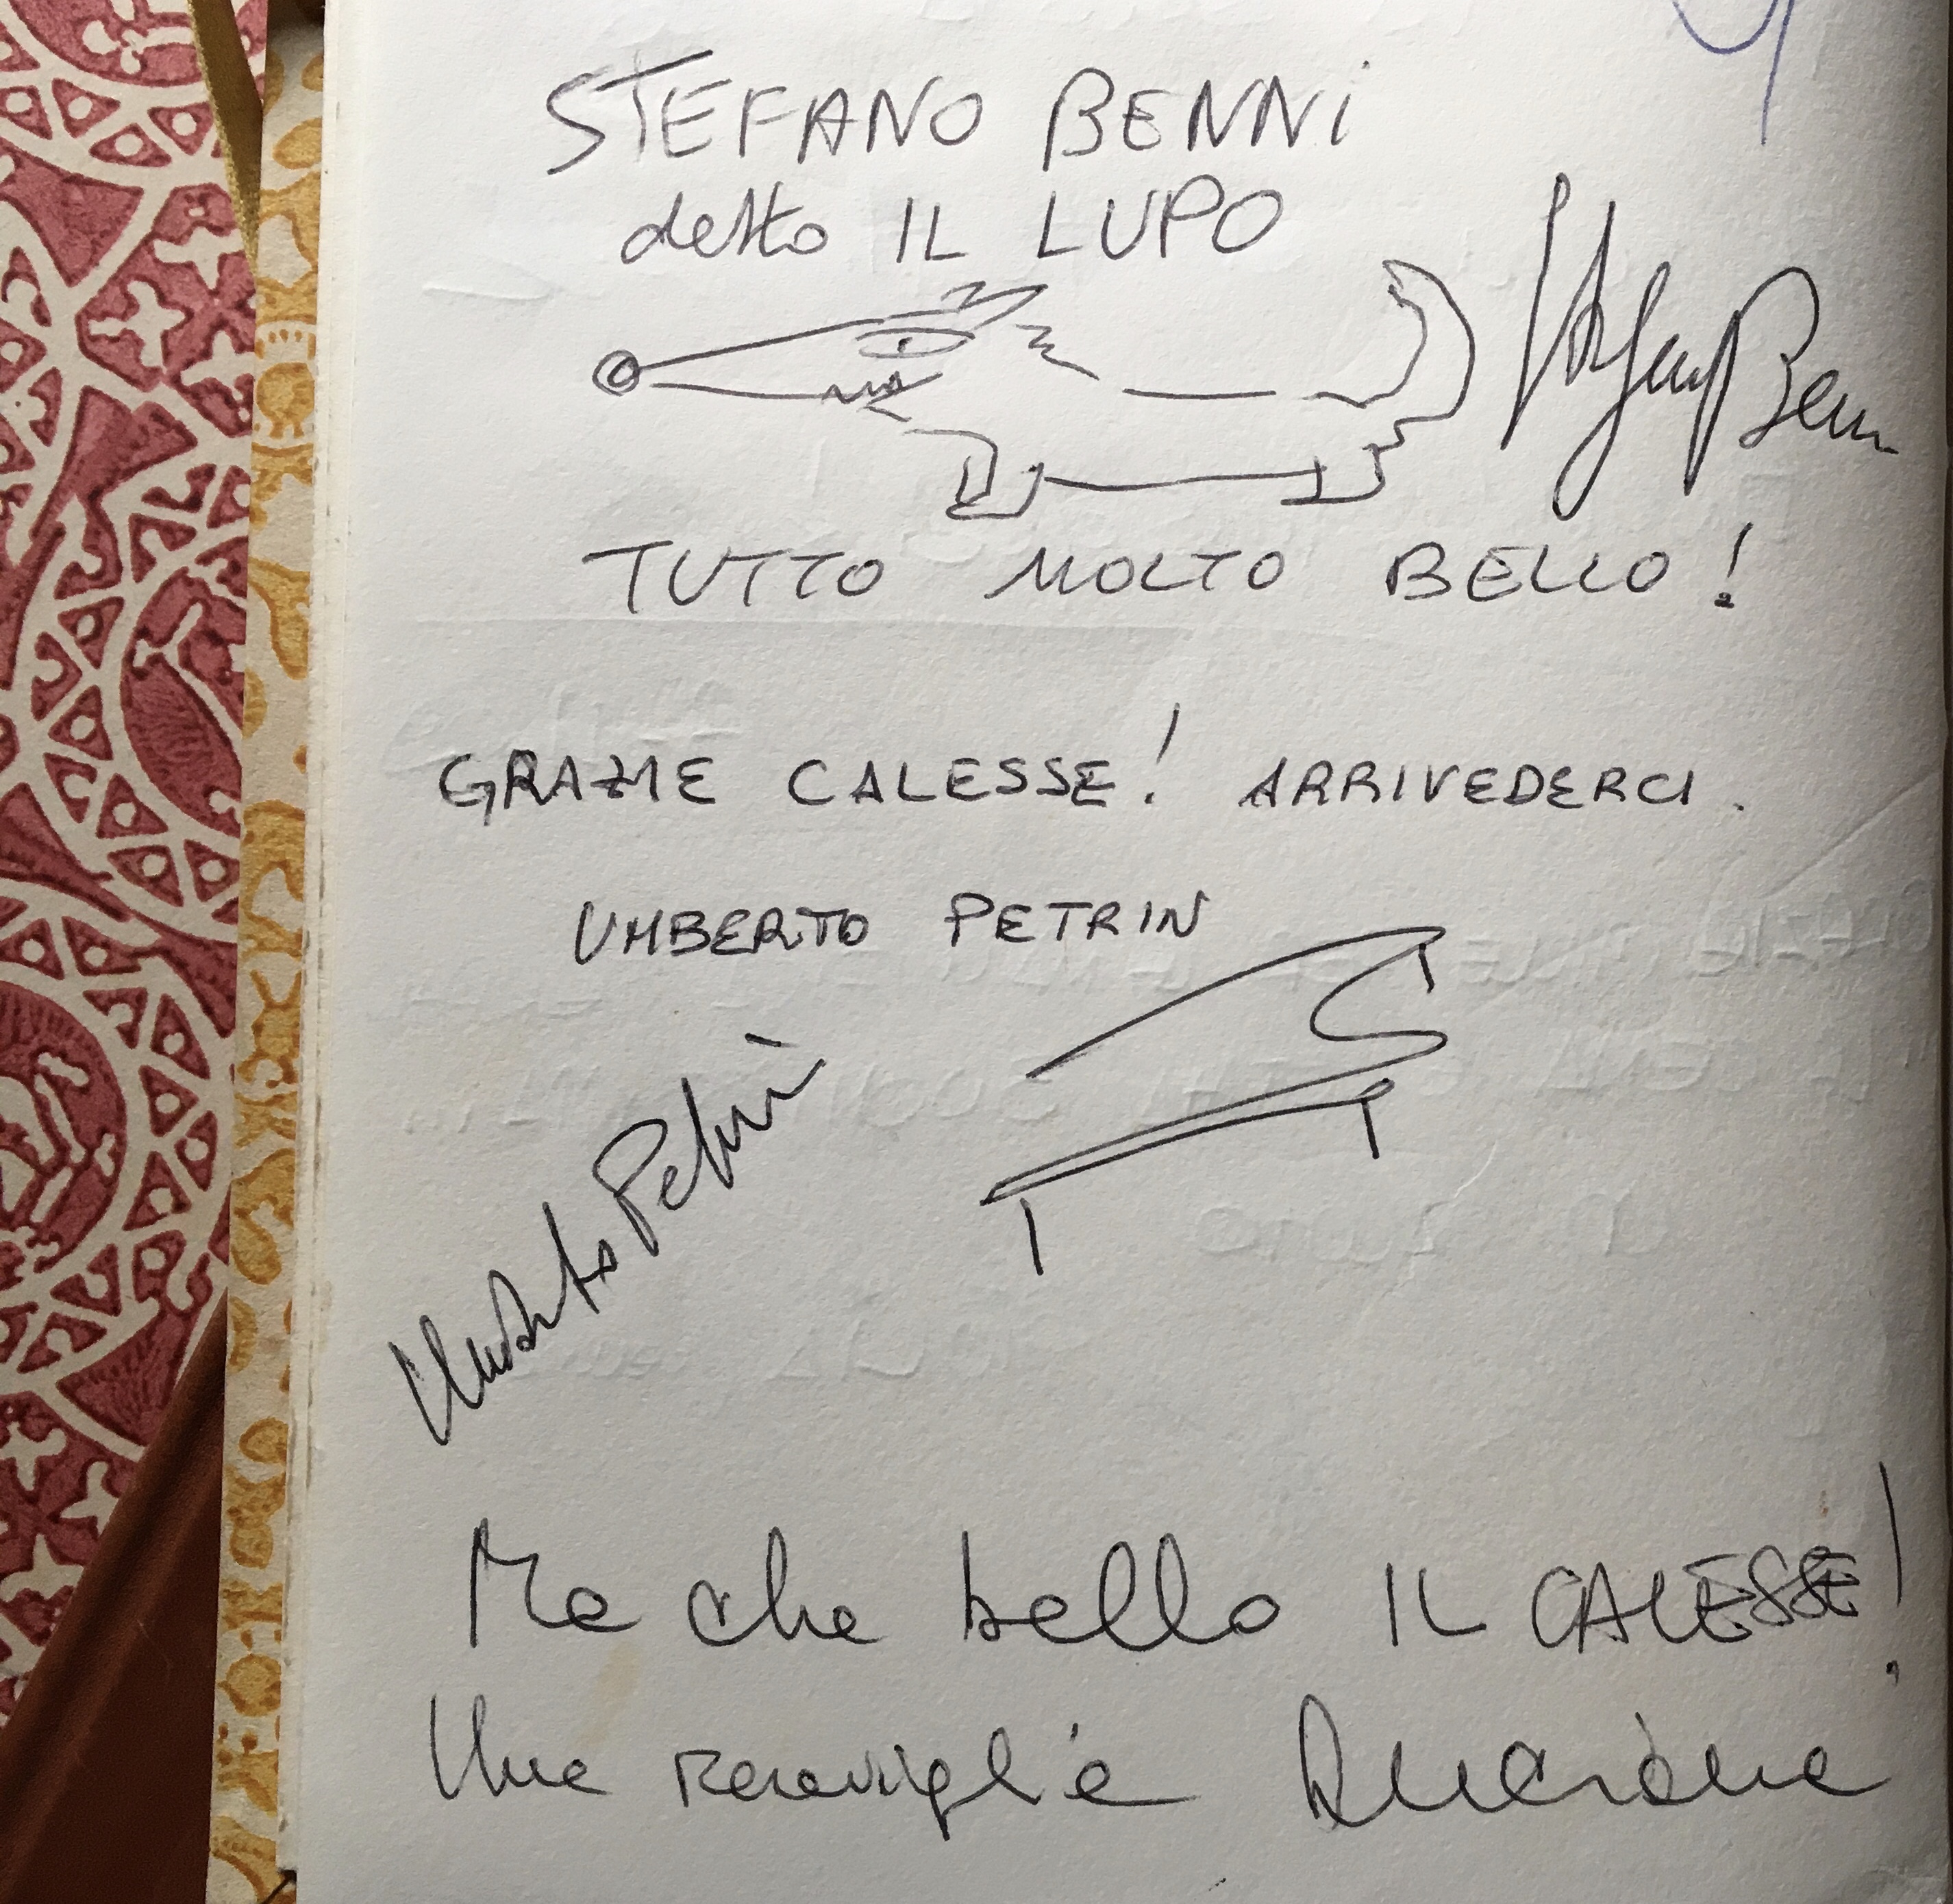 STEFANO BENNI
detto IL LUPO
Stefano Benni
TUTTO MOLTO BELLO!
GRAZIE CALESSE! ARRIVEDERCI.
UMBERTO PETRIN
Umberto Petrin
Ma che bello IL CALESSE!
Una meraviglia